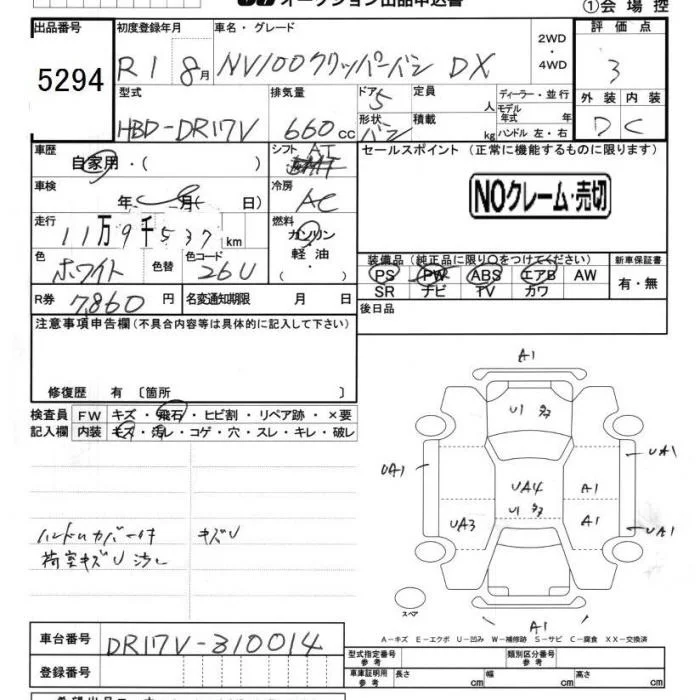 オークション出品申込書
①会場控
出品番号
5294
初度登録年月
R1 8月
車名・グレード
NV100クリッパーバン DX
2WD
・
4WD
評価点
3
外装 内装
D C
型式
HBD-DR17V
排気量
660cc
ドア
5
形状
バン
定員
人
積載
kg
ディーラー・並行
モデル年式 年
ハンドル 左・右
車歴
自家用・( )
シフト AT
車検
年 月( 日)
冷房
AC
走行
11万9千537km
燃料
ガソリン
・
軽油
・( )
色
ホワイト
色替
色コード
26U
R券 7,860円
名変通知期限 月 日
セールスポイント (正常に機能するものに限ります)
NOクレーム・売切
装備品 (純正品に限り○をつけてください)
PS PW ABS エアB AW
SR ナビ TV カワ
新車保証書
有・無
後日品
注意事項申告欄(不具合内容等は具体的に記入して下さい)
修復歴 有 〔箇所 〕
検査員記入欄
FW キズ・飛石・ヒビ割・リペア跡・×要
内装 キズ・汚レ・コゲ・穴・スレ・キレ・破レ
ハンドルカバー付 キズU
荷室キズU 汚レ
A1
U1 多
UA1
UA1
UA4
A1
U1 多
UA3
A1
UA1
A1
スペア
A-キズ E-エクボ U-凹み W-補修跡 S-サビ C-腐食 XX-交換済
車台番号 DR17V-310014
登録番号
型式指定番号
参考
類別区分番号
参考
車庫証明用
参考
長さ cm 幅 cm 高さ cm